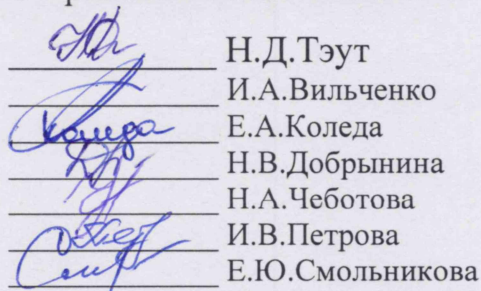 Н.Д.Тэут
И.А.Вильченко
Коледа Е.А.Коледа
Н.В.Добрынина
Н.А.Чеботова
И.В.Петрова
Е.Ю.Смольникова